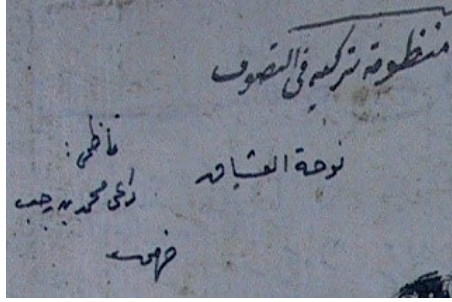 منظومة تركيه في التصوف
نوحة العشاق
ناظمى:
داعى محمد بن رجب